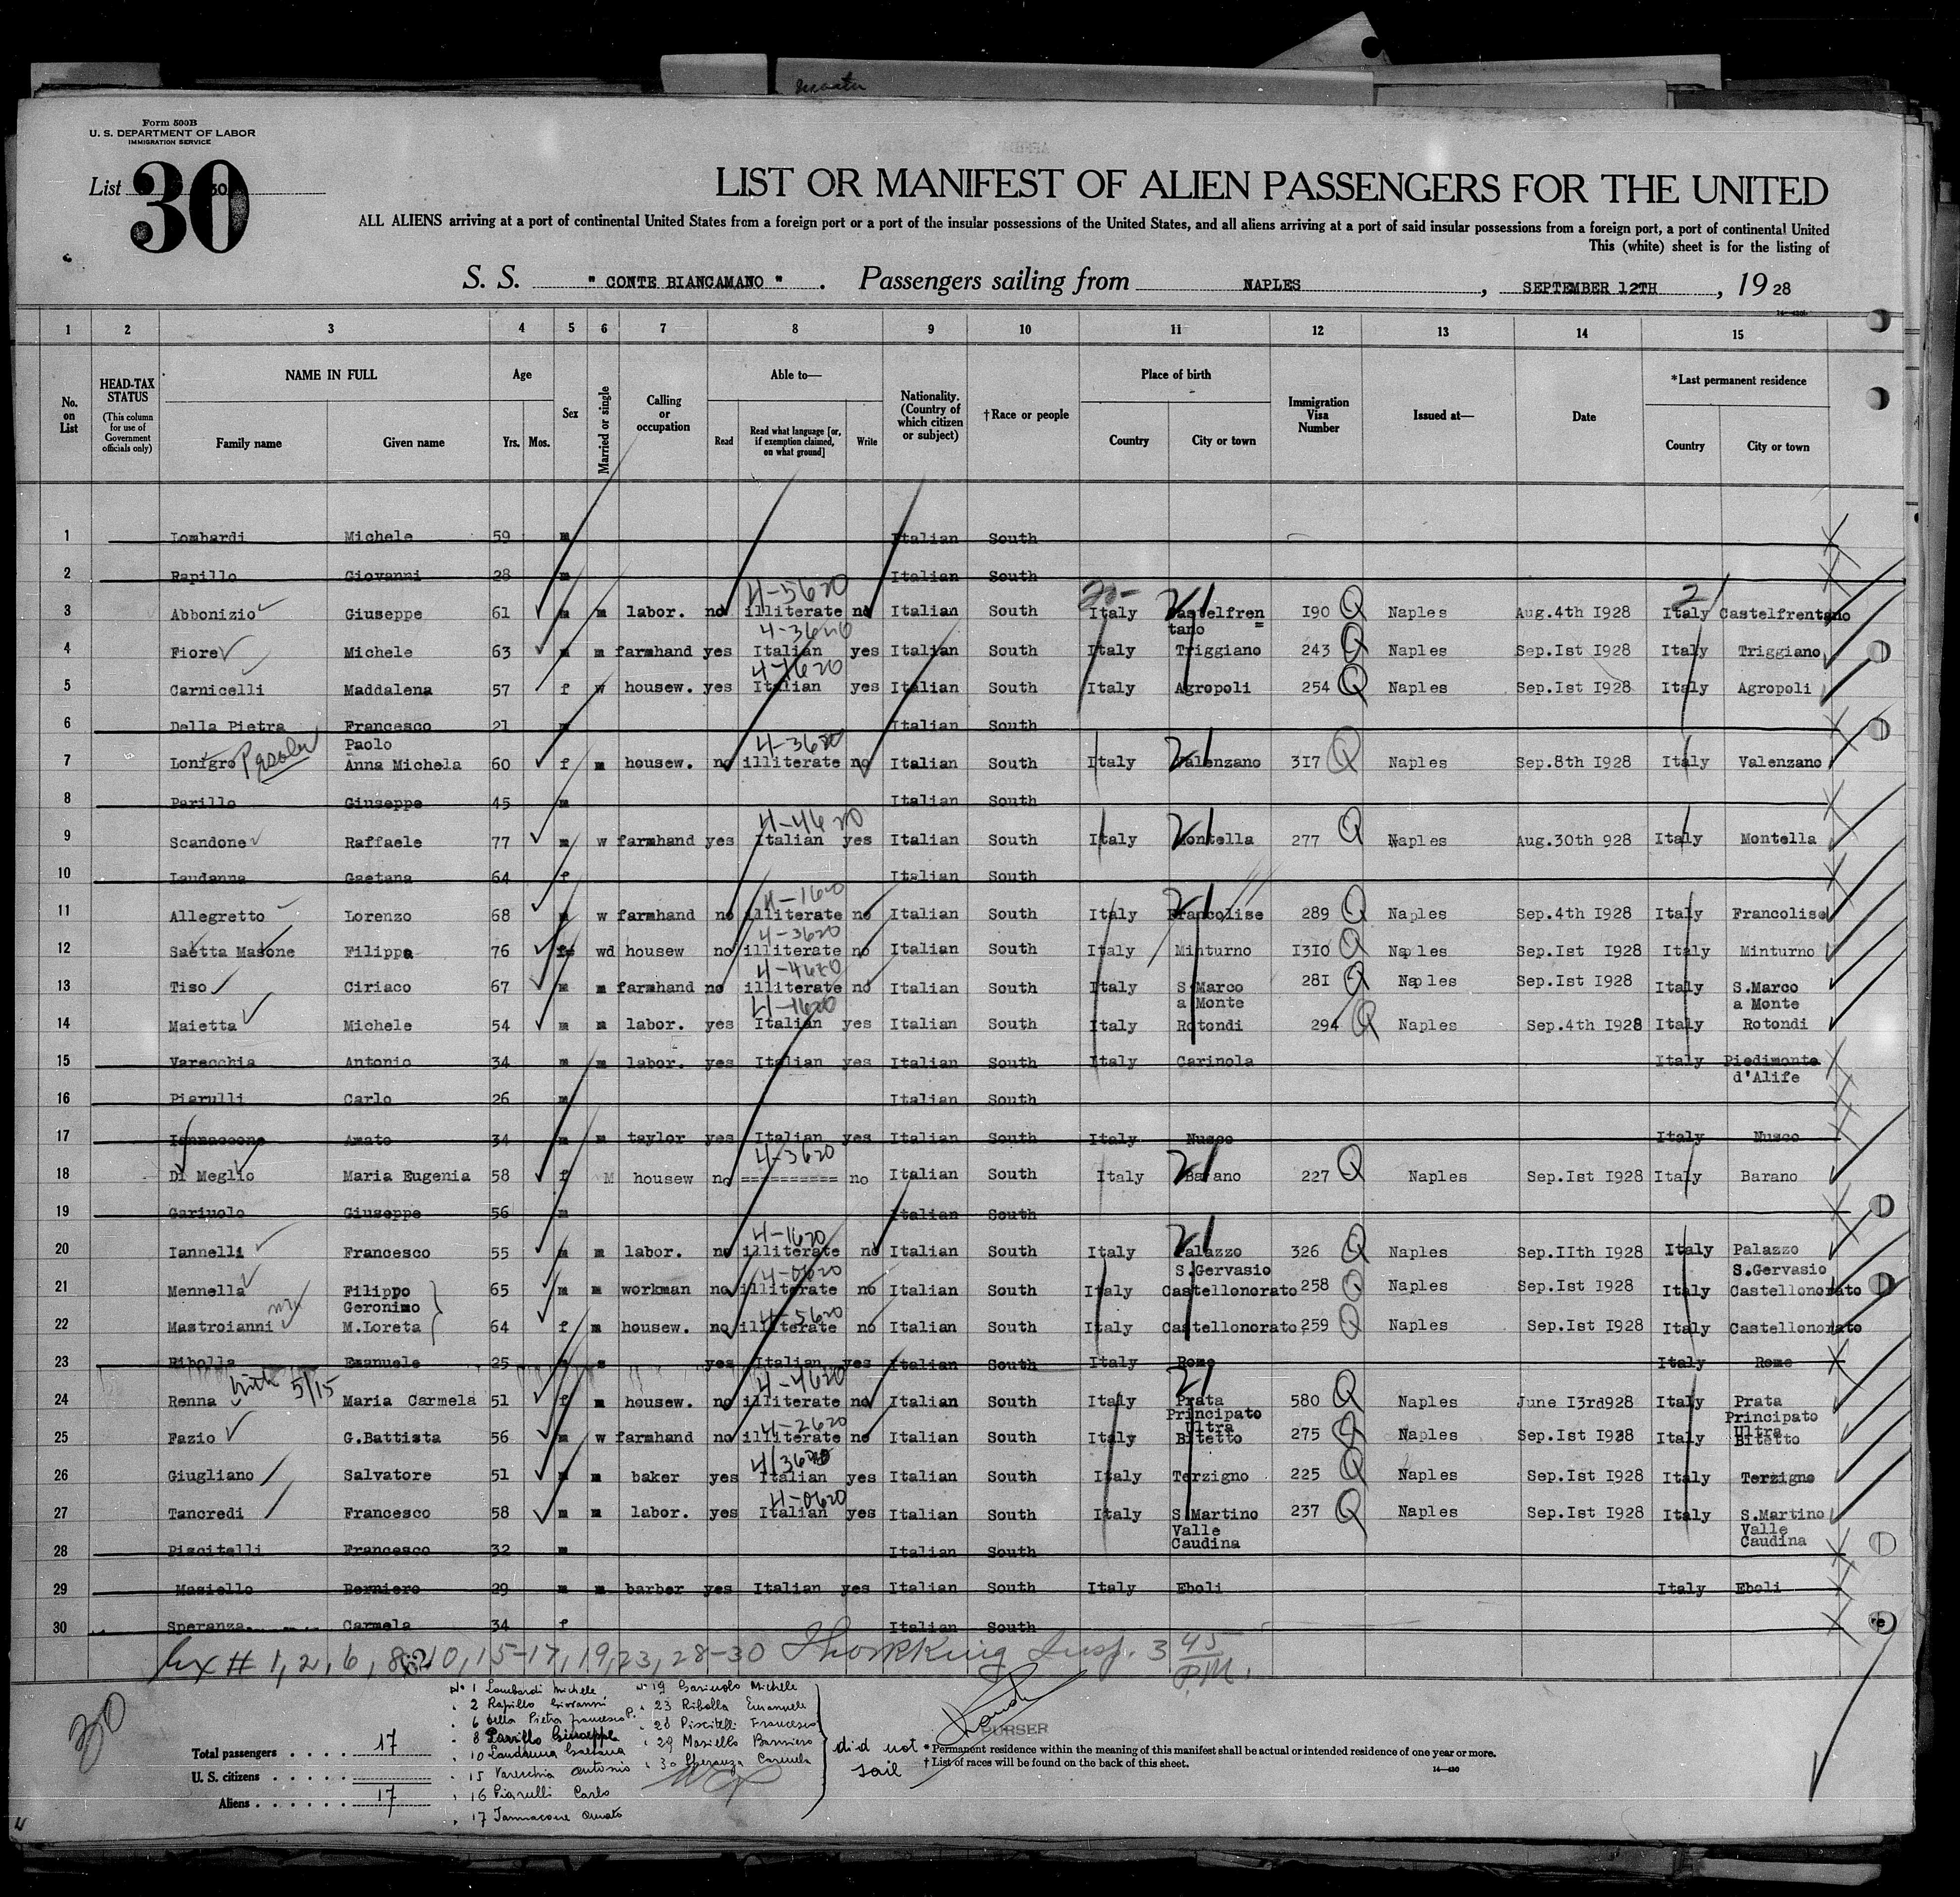 Form 500B
U. S. DEPARTMENT OF LABOR
IMMIGRATION SERVICE
List 30
30
LIST OR MANIFEST OF ALIEN PASSENGERS FOR THE UNITED
ALL ALIENS arriving at a port of continental United States from a foreign port or a port of the insular possessions of the United States, and all aliens arriving at a port of said insular possessions from a foreign port, a port of continental United
This (white) sheet is for the listing of
S. S. " CONTE BIANCAMANO " . Passengers sailing from NAPLES , SEPTEMBER 12TH , 19 28
1 2 3 4 5 6 7 8 9 10 11 12 13 14 15
No. on List
HEAD-TAX STATUS (This column for use of Government officials only)
NAME IN FULL Family name Given name
Age Yrs. Mos.
Sex
Married or single
Calling or occupation
Able to— Read Read what language [or, if exemption claimed, on what ground] Write
Nationality. (Country of which citizen or subject)
†Race or people
Place of birth Country City or town
Immigration Visa Number
Issued at—
Date
*Last permanent residence Country City or town
1 Lombardi Michele 59 m Italian South
2 Rapillo Giovanni 28 m Italian South
4-5620
3 Abbonizio Giuseppe 61 m m labor. no illiterate no Italian South Italy Castelfren= tano I90 Q Naples Aug.4th I928 Italy Castelfrentano
4 Fiore Michele 63 m m farmhand yes Italian yes Italian South Italy Triggiano 243 Q Naples Sep.Ist I928 Italy Triggiano
5 Carnicelli Maddalena 57 f w housew. yes Italian yes Italian South Italy Agropoli 254 Q Naples Sep.Ist I928 Italy Agropoli
6 Della Pietra Francesco Paolo 21 m Italian South
4-3620
7 Lonigro Anna Michela 60 f m housew. no illiterate no Italian South Italy Valenzano 3I7 Q Naples Sep.8th I928 Italy Valenzano
8 Parillo Giuseppe 45 m Italian South
4-4620
9 Scandone Raffaele 77 m w farmhand yes Italian yes Italian South Italy Montella 277 Q Naples Aug.30th 928 Italy Montella
10 Laudanna Gaetana 64 f Italian South
11 Allegretto Lorenzo 68 m w farmhand no illiterate no Italian South Italy Francolise 289 Q Naples Sep.4th I928 Italy Francolise
4-3620
12 Saetta Masone Filippa 76 f wd housew no illiterate no Italian South Italy Minturno I3I0 Q Naples Sep.Ist I928 Italy Minturno
4-4620
13 Tiso Ciriaco 67 m m farmhand no illiterate no Italian South Italy S.Marco a Monte 28I Q Naples Sep.Ist I928 Italy S.Marco a Monte
4-1620
14 Maietta Michele 54 m m labor. yes Italian yes Italian South Italy Rotondi 294 Q Naples Sep.4th I928 Italy Rotondi
15 Varecchia Antonio 34 m m labor. yes Italian yes Italian South Italy Carinola Italy Piedimonte d'Alife
16 Piarulli Carlo 26 m Italian South
17 Iannaccone Amato 34 m m taylor yes Italian yes Italian South Italy Nusco Italy Nusco
4-3620
18 Di Meglio Maria Eugenia 58 f M housew no ========== no Italian South Italy Barano 227 Q Naples Sep.Ist I928 Italy Barano
19 Gariuolo Giuseppe 56 m Italian South
4-1620
20 Iannelli Francesco 55 m m labor. no illiterate no Italian South Italy Palazzo S.Gervasio 326 Q Naples Sep.IIth I928 Italy Palazzo S.Gervasio
4-0620
21 Mennella Filippo Geronimo 65 m m workman no illiterate no Italian South Italy Castellonorato 258 Q Naples Sep.Ist I928 Italy Castellonorato
4-5620
22 Mastroianni M.Loreta 64 f m housew. no illiterate no Italian South Italy Castellonorato 259 Q Naples Sep.Ist I928 Italy Castellonorato
23 Ribolla Emanuele 25 m s yes Italian yes Italian South Italy Rome Italy Rome
5/15 4-4620
24 Renna Maria Carmela 51 f m housew. no illiterate no Italian South Italy Prata Principato Ultra 580 Q Naples June I3rd928 Italy Prata Principato Ultra
4-2620
25 Fazio G.Battista 56 m w farmhand no illiterate no Italian South Italy Bitetto 275 Q Naples Sep.Ist I928 Italy Bitetto
26 Giugliano Salvatore 51 m m baker yes Italian yes Italian South Italy Terzigno 225 Q Naples Sep.Ist I928 Italy Terzigno
4-0620
27 Tancredi Francesco 58 m m labor. yes Italian yes Italian South Italy S.Martino Valle Caudina 237 Q Naples Sep.Ist I928 Italy S.Martino Valle Caudina
28 Piscitelli Francesco 32 m Italian South
29 Masiello Berniero 29 m m barber yes Italian yes Italian South Italy Eboli Italy Eboli
30 Speranza Carmela 34 f Italian South
# 1, 2, 6, 8, 10, 15-17, 19, 23, 28-30 Insp. 3 45 P.M.
30
No 1 Lombardi Michele
2 Rapillo Giovanni
6 Della Pietra Francesco P.
8 Parrillo Giuseppe
10 Laudanna Gaetana
15 Varecchia Antonio
16 Piarulli Carlo
17 Iannacone Amato
No 19 Gariuolo Michele
23 Ribolla Emanuele
28 Piscitelli Francesco
29 Masiello Barniero
30 Speranza Carmela
did not sail
PURSER
Total passengers . . . . 17
U. S. citizens . . . . .
Aliens . . . . . . 17
* Permanent residence within the meaning of this manifest shall be actual or intended residence of one year or more.
† List of races will be found on the back of this sheet.